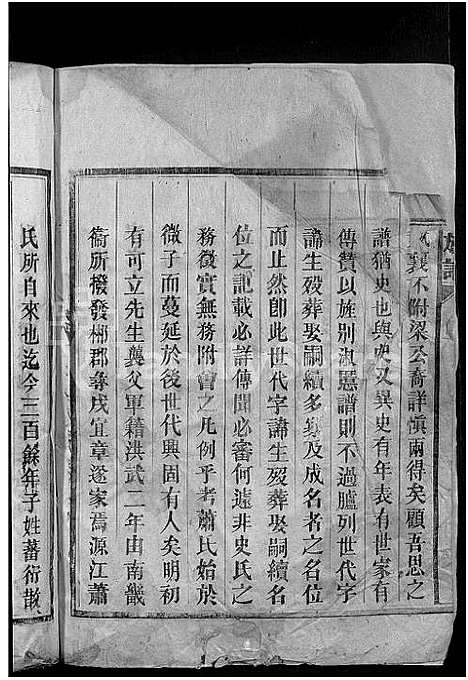 襄不附梁公裔詳慎兩得矣顧吾思之
譜猶史也與史又異史有年表有世家有
傳贊以旌別淑慝譜則不過臚列世代字
諱生歿葬娶嗣續多寡及成名者之名位
而止然卽此世代字諱生歿葬娶嗣續名
位之記載必詳傳聞必審何遠非史氏之
務徵實無務附會之凡例乎考蕭氏始於
微子而蔓延於後世代興固有人矣明初
有可立先生襲父軍籍洪武二年由南畿
衛所撥發郴郡彝戌宜章遂家焉源江蕭
氏所自來也迄今三百餘年子姓蕃衍散